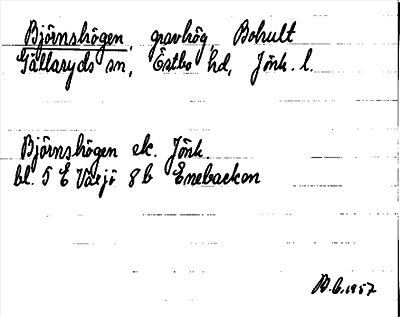 Björnshögen, gravhög, Bohult
Gällaryds sn, Östbo hd, Jönk. l.
Björnshögen ek. Jönk.
bl. 5 E Växjö 8 b Enebacken
1957